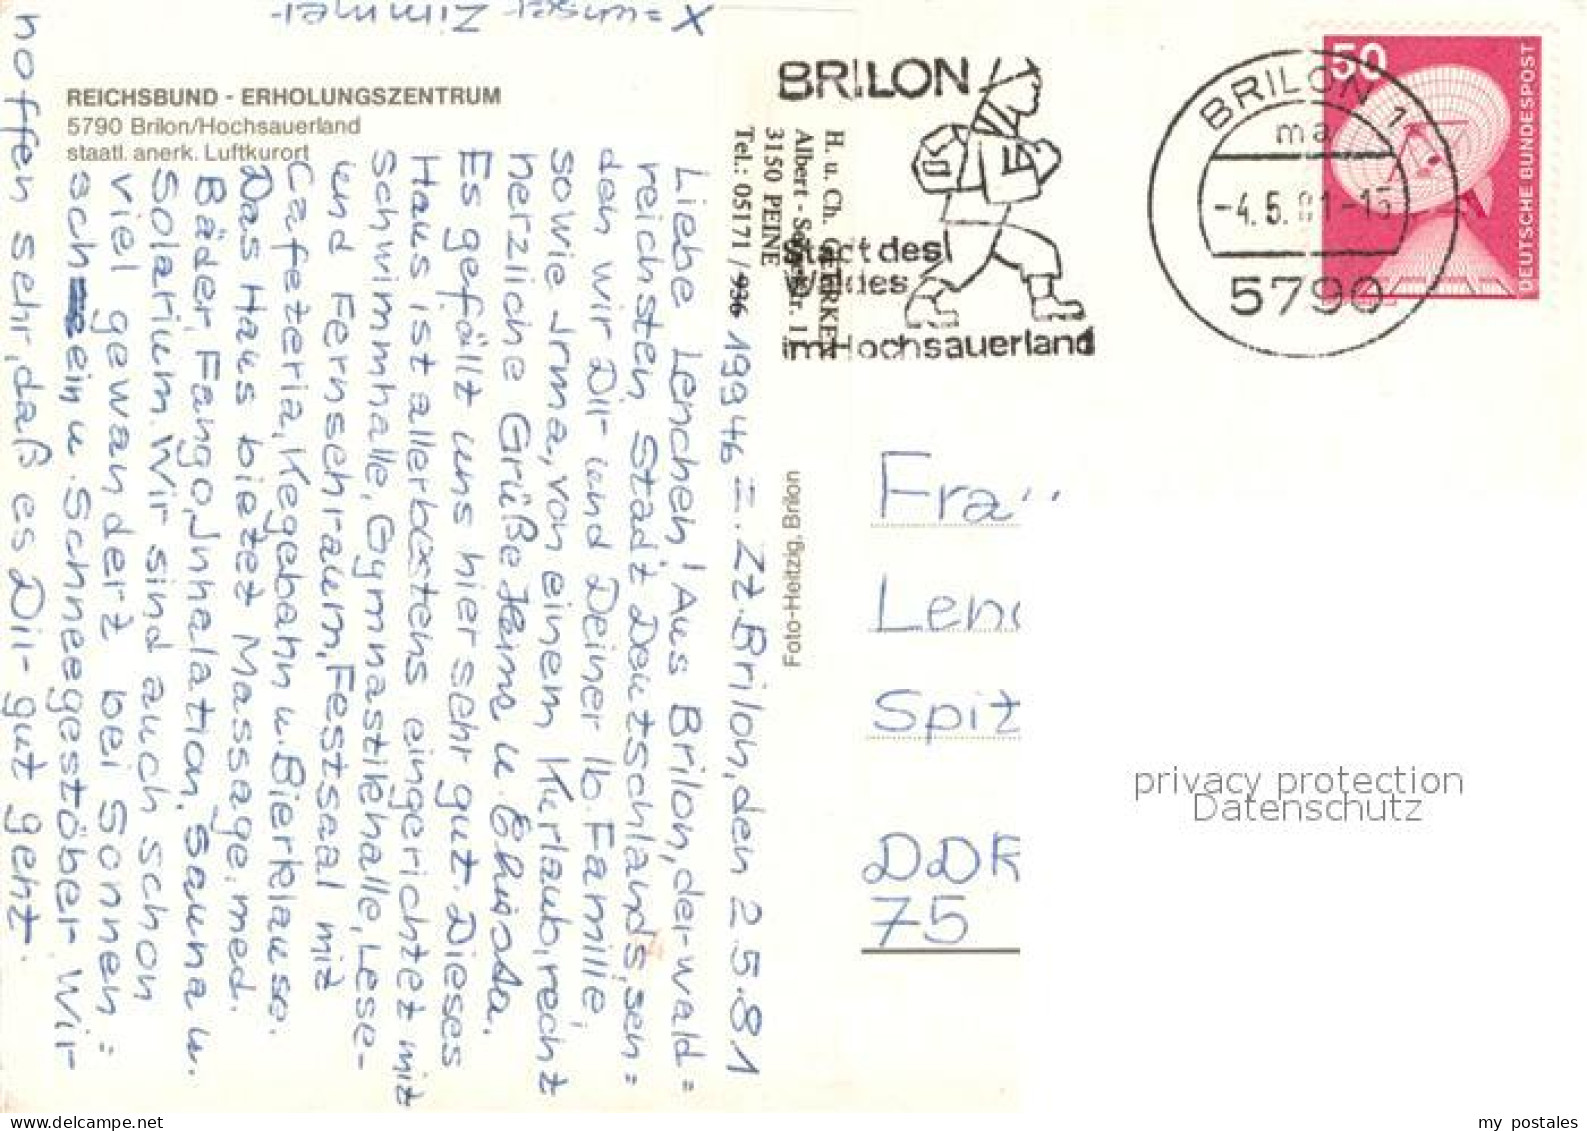 X = unser Zimmer
REICHSBUND - ERHOLUNGSZENTRUM
5790 Brilon/Hochsauerland
staatl. anerk. Luftkurort
H. u. Ch. GERKE
Albert - Str. 1
3150 PEINE
Tel.: 05171 / 19946 =. Zt. Brilon, den 2.5.81
Liebe Lenchen! Aus Brilon, der wald=
reichsten Stadt Deutschlands, sen=
den wir Dir und Deiner lb. Familie,
sowie Irma, von einem Kurlaub, recht
herzliche Grüße Heinz u. Christa.
Es gefällt uns hier sehr gut. Dieses
Haus ist allerbestens eingerichtet mit
schwimmhalle, Gymnastikhalle, Lese-
und Fernsehraum, Festsaal mit
Cafeteria, Kegebahn u. Bierklause.
Das Haus bietet Massage, med.
Bäder, Fango, Inhalation, Sauna u.
Solarium. Wir sind auch schon
viel gewandert bei Sonnen=
schein u. Schneegestöber. Wir
hoffen sehr, daß es Dir gut geht.
Foto-Heitzig, Brilon
BRILON
Stadt des
Waldes
im Hochsauerland
BRILON 1
ma
-4.5.81-15
5790
50
DEUTSCHE BUNDESPOST
Frau
Lenc
Spitz
DDR
75
privacy protection
Datenschutz
my postales